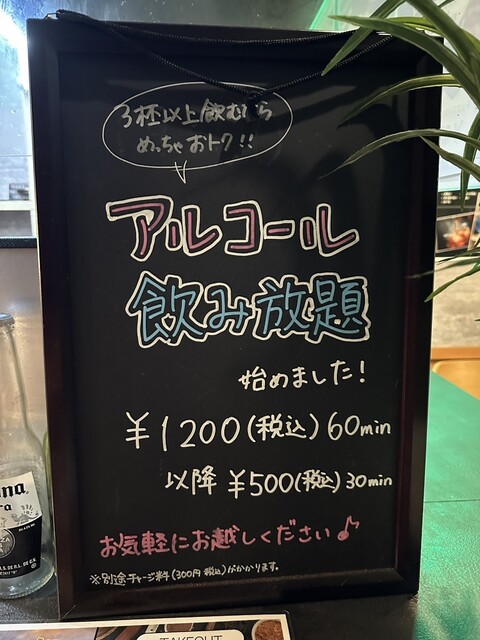 3杯以上飲むなら
めっちゃおトク!!
アルコール
飲み放題
始めました!
¥1200(税込)60min
以降 ¥500(税込)30min
お気軽にお越しください♪
※別途チャージ料(300円税込)がかかります。
TAKEOUT